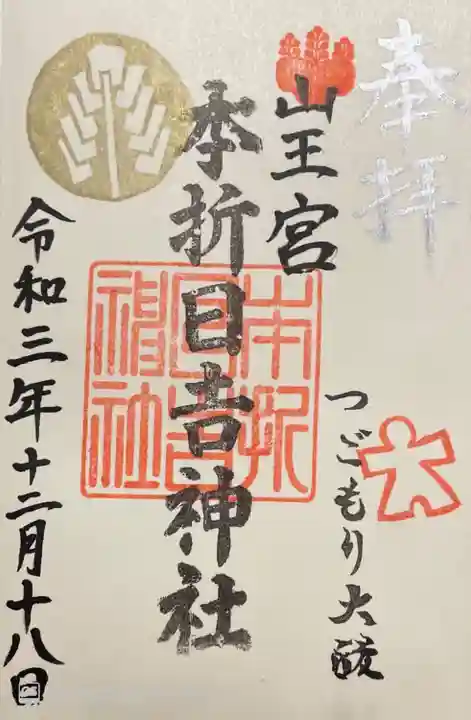 奉拝
山王宮
つごもり大祓
本折日吉神社
本折日吉神社
令和三年十二月十八日